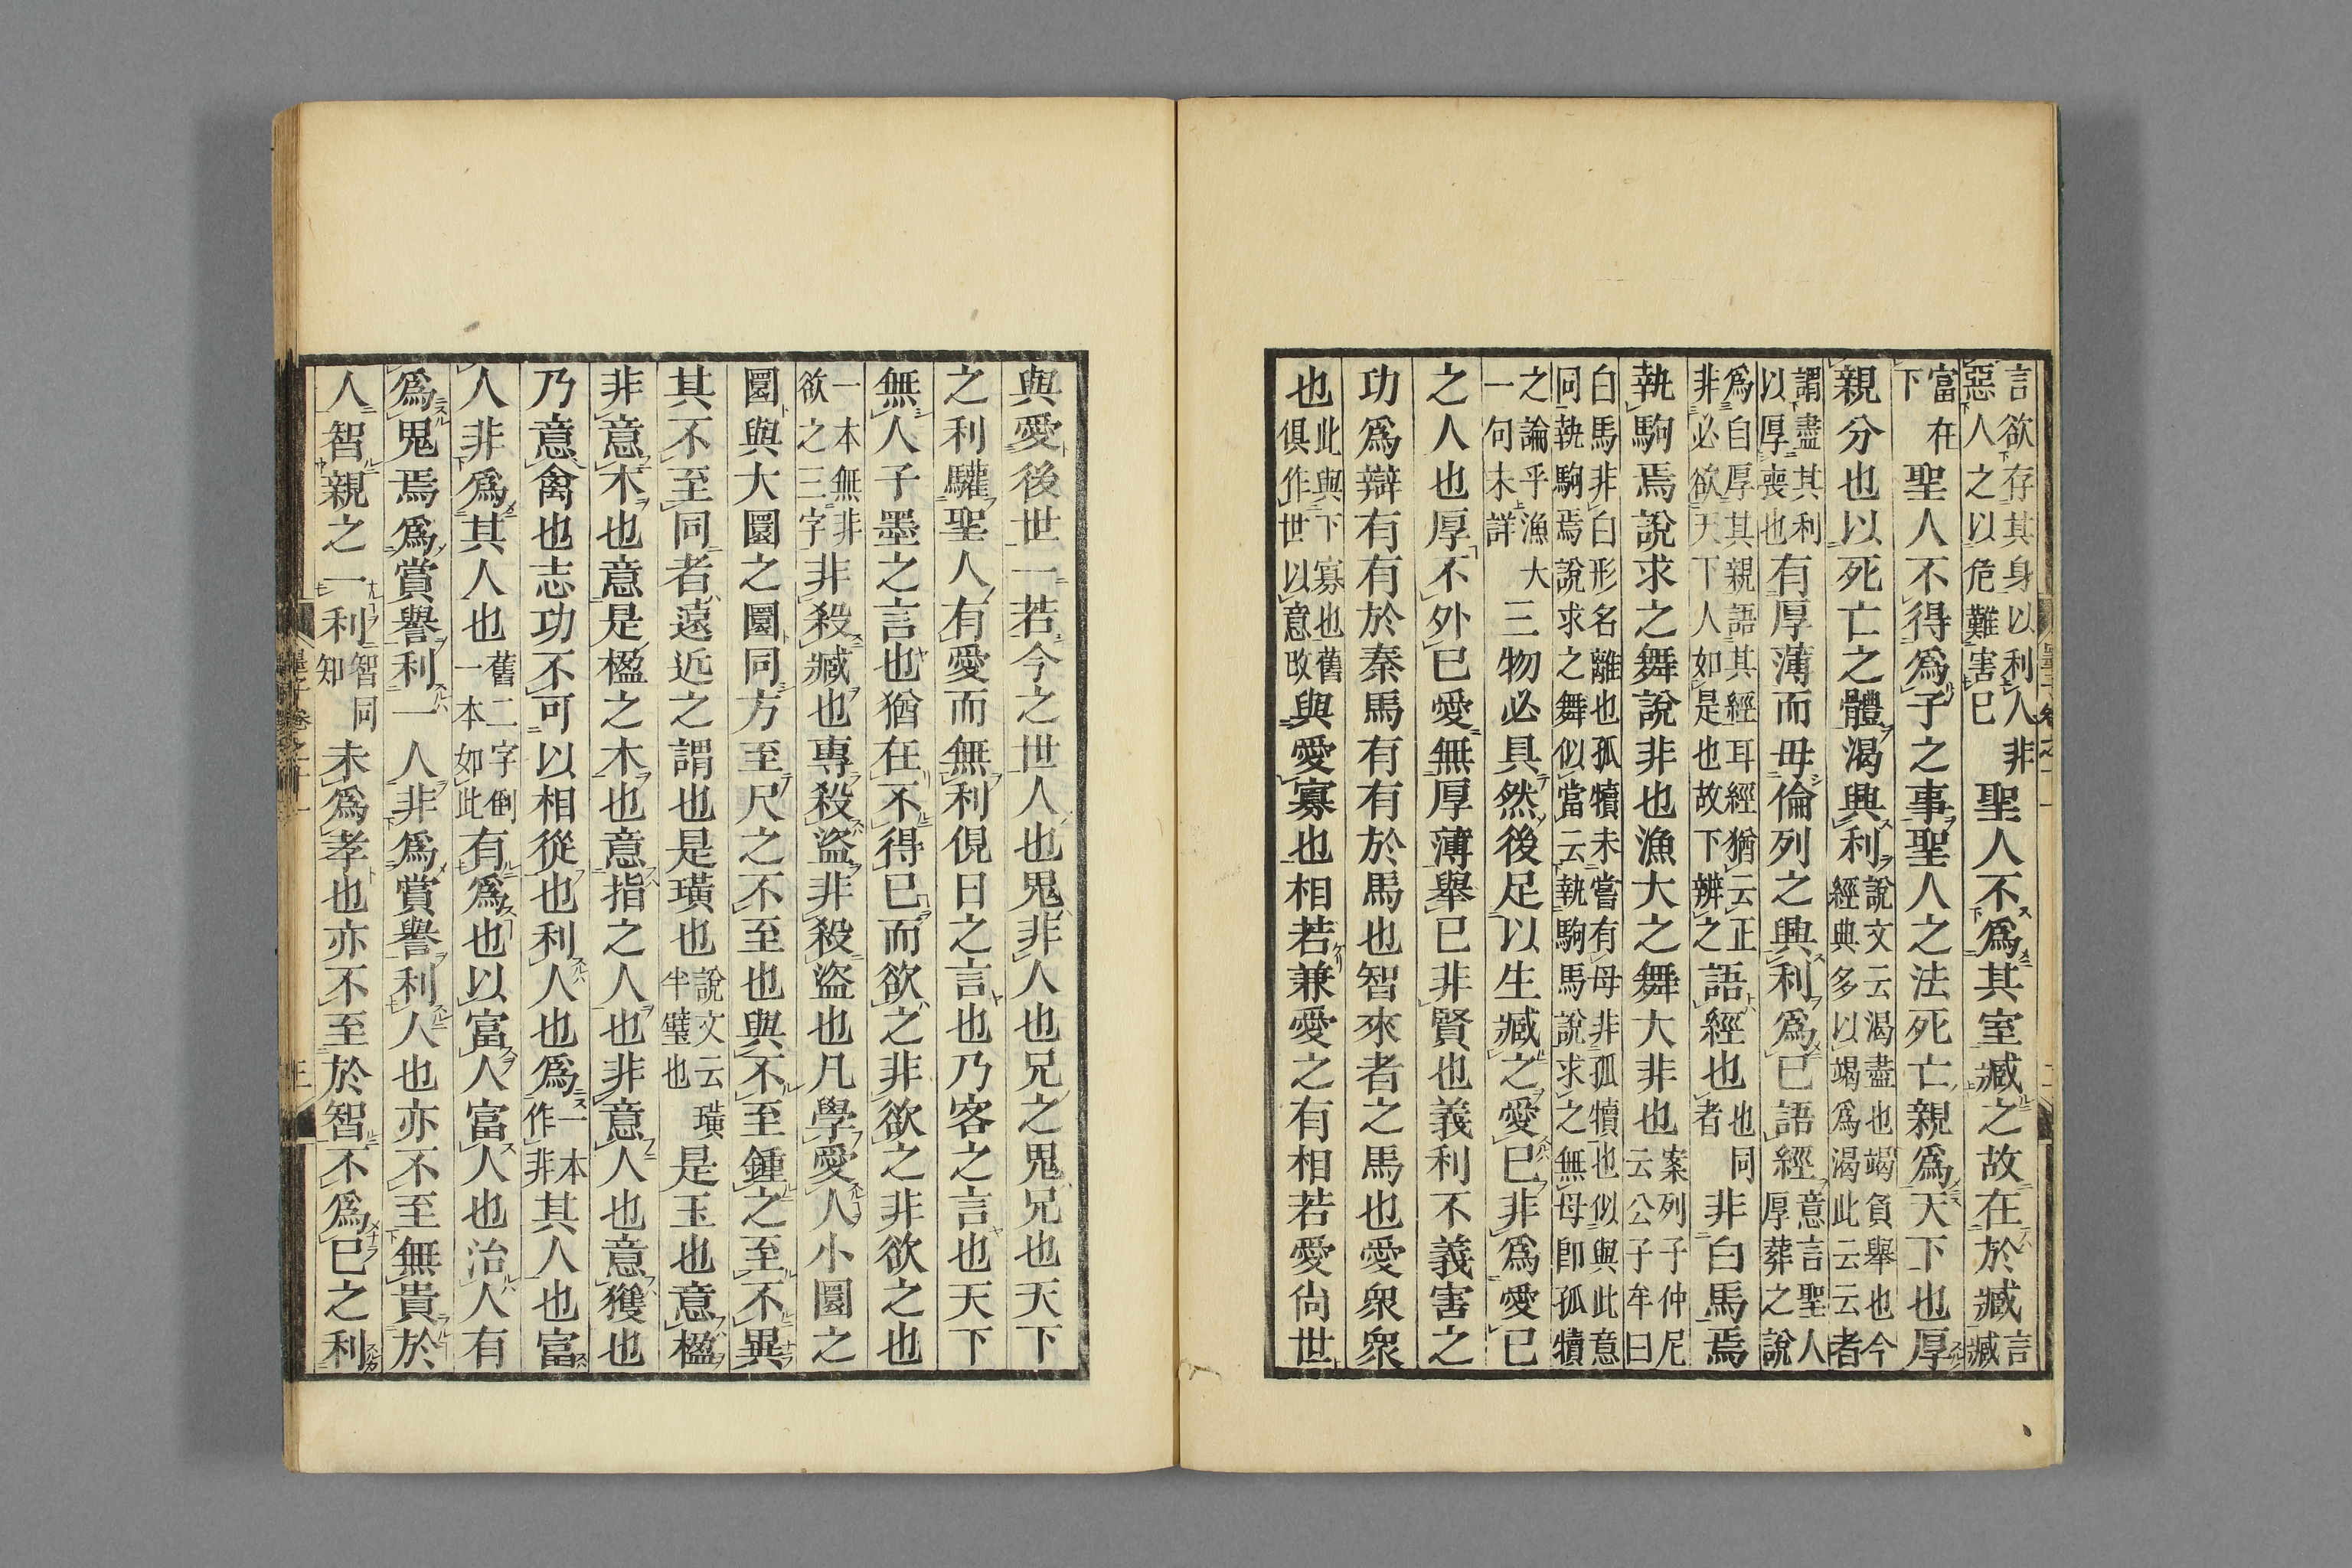 言欲存其身以利人非惡人之以危難害已聖人不爲其室臧之故在於臧言臧
富在下聖人不得爲子之事聖人之法死亡親爲天下也厚
親分也以死亡之體渴興利說文云渴盡也竭負舉也今經典多以竭爲渴此云云者
謂盡其利以厚喪也有厚薄而毋倫列之興利爲已語經意言聖人厚葬之說
爲自厚其親語其經耳經猶云正非必欲天下人如是也故下辨之語經也也同者非白馬焉
執駒焉說求之舞說非也漁大之舞大非也案列子仲尼云公子牟曰
白馬非白形名離也孤犢未嘗有母非孤犢也似與此意同執駒焉說求之舞似當云執駒馬說求之無母卽孤犢
之論乎漁大一句未詳三物必具然後足以生臧之愛已非爲愛已
之人也厚不外已愛無厚薄舉已非賢也義利不義害之
功爲辯有有於秦馬有有於馬也智來者之馬也愛衆衆
也此與下寡也舊俱作世以意改與愛寡也相若兼愛之有相若愛尙世
與愛後世一若今之世人也鬼非人也兄之鬼兄也天下
之利驩聖人有愛而無利俔日之言也乃客之言也天下
無人子墨之言也猶在不得已而欲之非欲之非欲之也
一本無非欲之三字非殺臧也專殺盜非殺盜也凡學愛人小圜之
圜與大圜之圜同方至尺之不至也與不至鍾之至不異
其不至同者遠近之謂也是璜也說文云璜半璧也是玉也意楹
非意木也意是楹之木也意指之人也非意人也意獲也
乃意禽也志功不可以相從也利人也爲一本作非其人也富
人非爲其人也舊二字倒一本如此有爲也以富人富人也治人有
爲鬼焉爲賞譽利一人非爲賞譽利人也亦不至無貴於
人智親之一利智同知未爲孝也亦不至於智不爲已之利